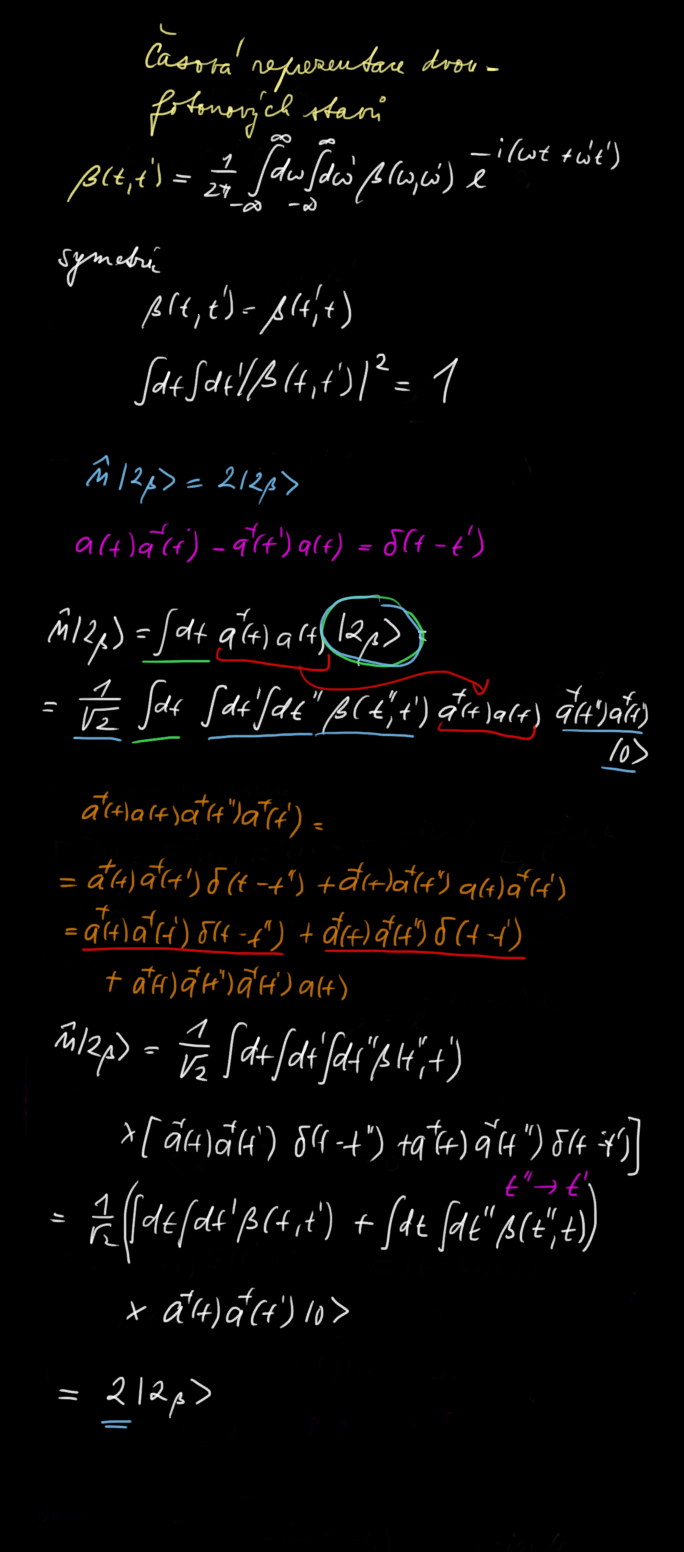 Časová reprezentace dvou-
fotonových stavů
β(t,t') = 1/2π ∫_{-∞}^{∞} dω ∫_{-∞}^{∞} dω' β(ω,ω') e^{-i(ωt + ω't')}
symetrie
β(t,t') = β(t',t)
∫dt ∫dt' |β(t,t')|² = 1
n̂|2β⟩ = 2|2β⟩
a(t)a⁺(t') - a⁺(t')a(t) = δ(t-t')
n̂|2β⟩ = ∫dt a⁺(t)a(t) |2β⟩ =
= 1/√2 ∫dt ∫dt' ∫dt'' β(t'',t') a⁺(t)a(t) a⁺(t'')a⁺(t')
|0⟩
a⁺(t)a(t)a⁺(t'')a⁺(t') =
= a⁺(t)a⁺(t') δ(t-t'') + a⁺(t)a⁺(t'') a(t)a⁺(t')
= a⁺(t)a⁺(t') δ(t-t'') + a⁺(t)a⁺(t'') δ(t-t')
+ a⁺(t)a⁺(t'')a⁺(t')a(t)
n̂|2β⟩ = 1/√2 ∫dt∫dt'∫dt'' β(t'',t')
× [a⁺(t)a⁺(t') δ(t-t'') + a⁺(t)a⁺(t'') δ(t-t')]
t'' → t'
= 1/√2 (∫dt∫dt' β(t,t') + ∫dt ∫dt'' β(t'',t))
× a⁺(t)a⁺(t')|0⟩
= 2|2β⟩